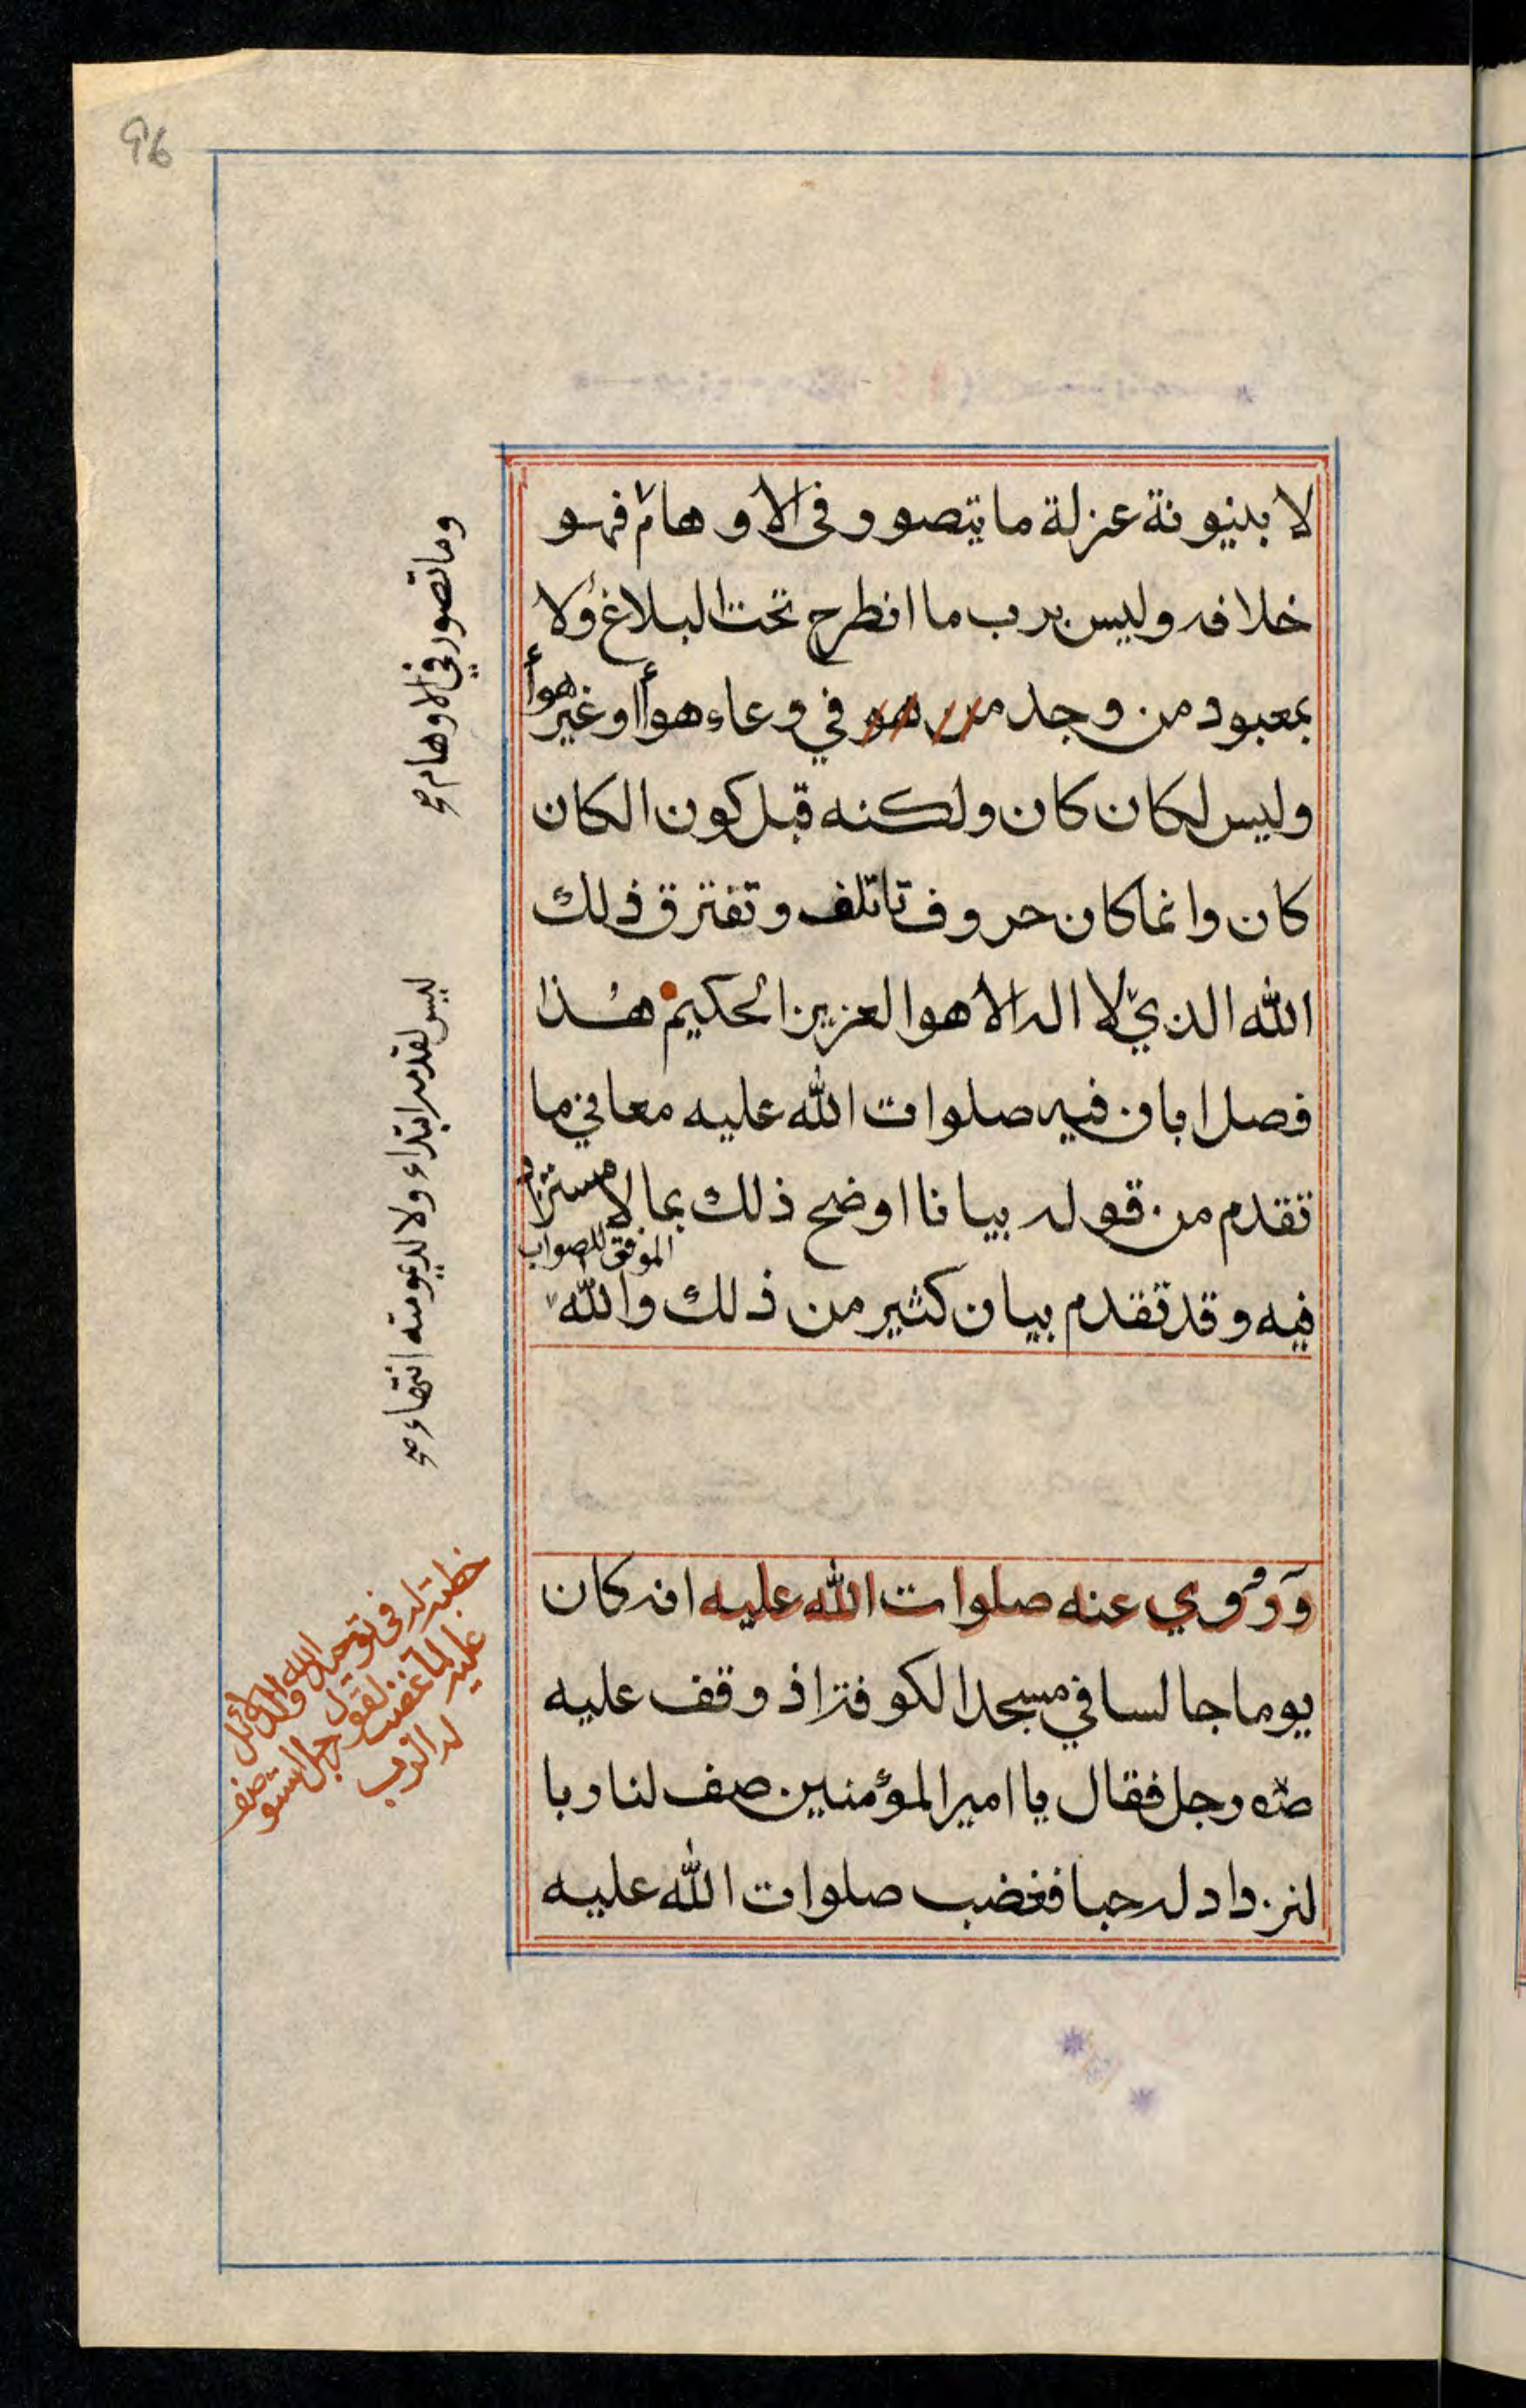 96
لا بينونة عزلة ما يتصور في الاوهام فهو
خلافه وليس برب ما انطرح تحت البلاغ ولا
بمعبود من وجد من هو في وعاء هواأ او غير هواأ
وليس لكان كان ولكنه قبل كون الكان
كان وانما كان حروف تاتلف وتفترق ذلك
الله الذي لا اله الا هو العزيز الحكيم هذا
فصل ابان فيه صلوات الله عليه معاني ما
تقدم من قوله بيانا اوضح ذلك بما لا مستزاد
فيه وقد تقدم بيان كثير من ذلك والله الموفق للصواب
وروي عنه صلوات الله عليه انه كان
يوما جالسا في مسجد الكوفة اذ وقف عليه
رجل فقال يا امير المؤمنين صف لنا ربا
لنزداد له حبا فغضب صلوات الله عليه
وما تصور في الاوهام صح
ليس لقدمه ابتداء ولا لديمومته انتهاء صح
خطبته له في توحيد الله
عليه لما غضب لقول رجل
له الرب